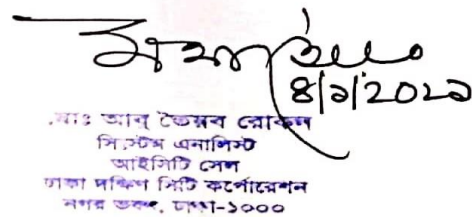 ৪/১/২০২১
মোঃ আবু তৈয়ব রোকন
সিস্টেম এনালিস্ট
আইসিটি সেল
ঢাকা দক্ষিণ সিটি কর্পোরেশন
নগর ভবন, ঢাকা-১০০০